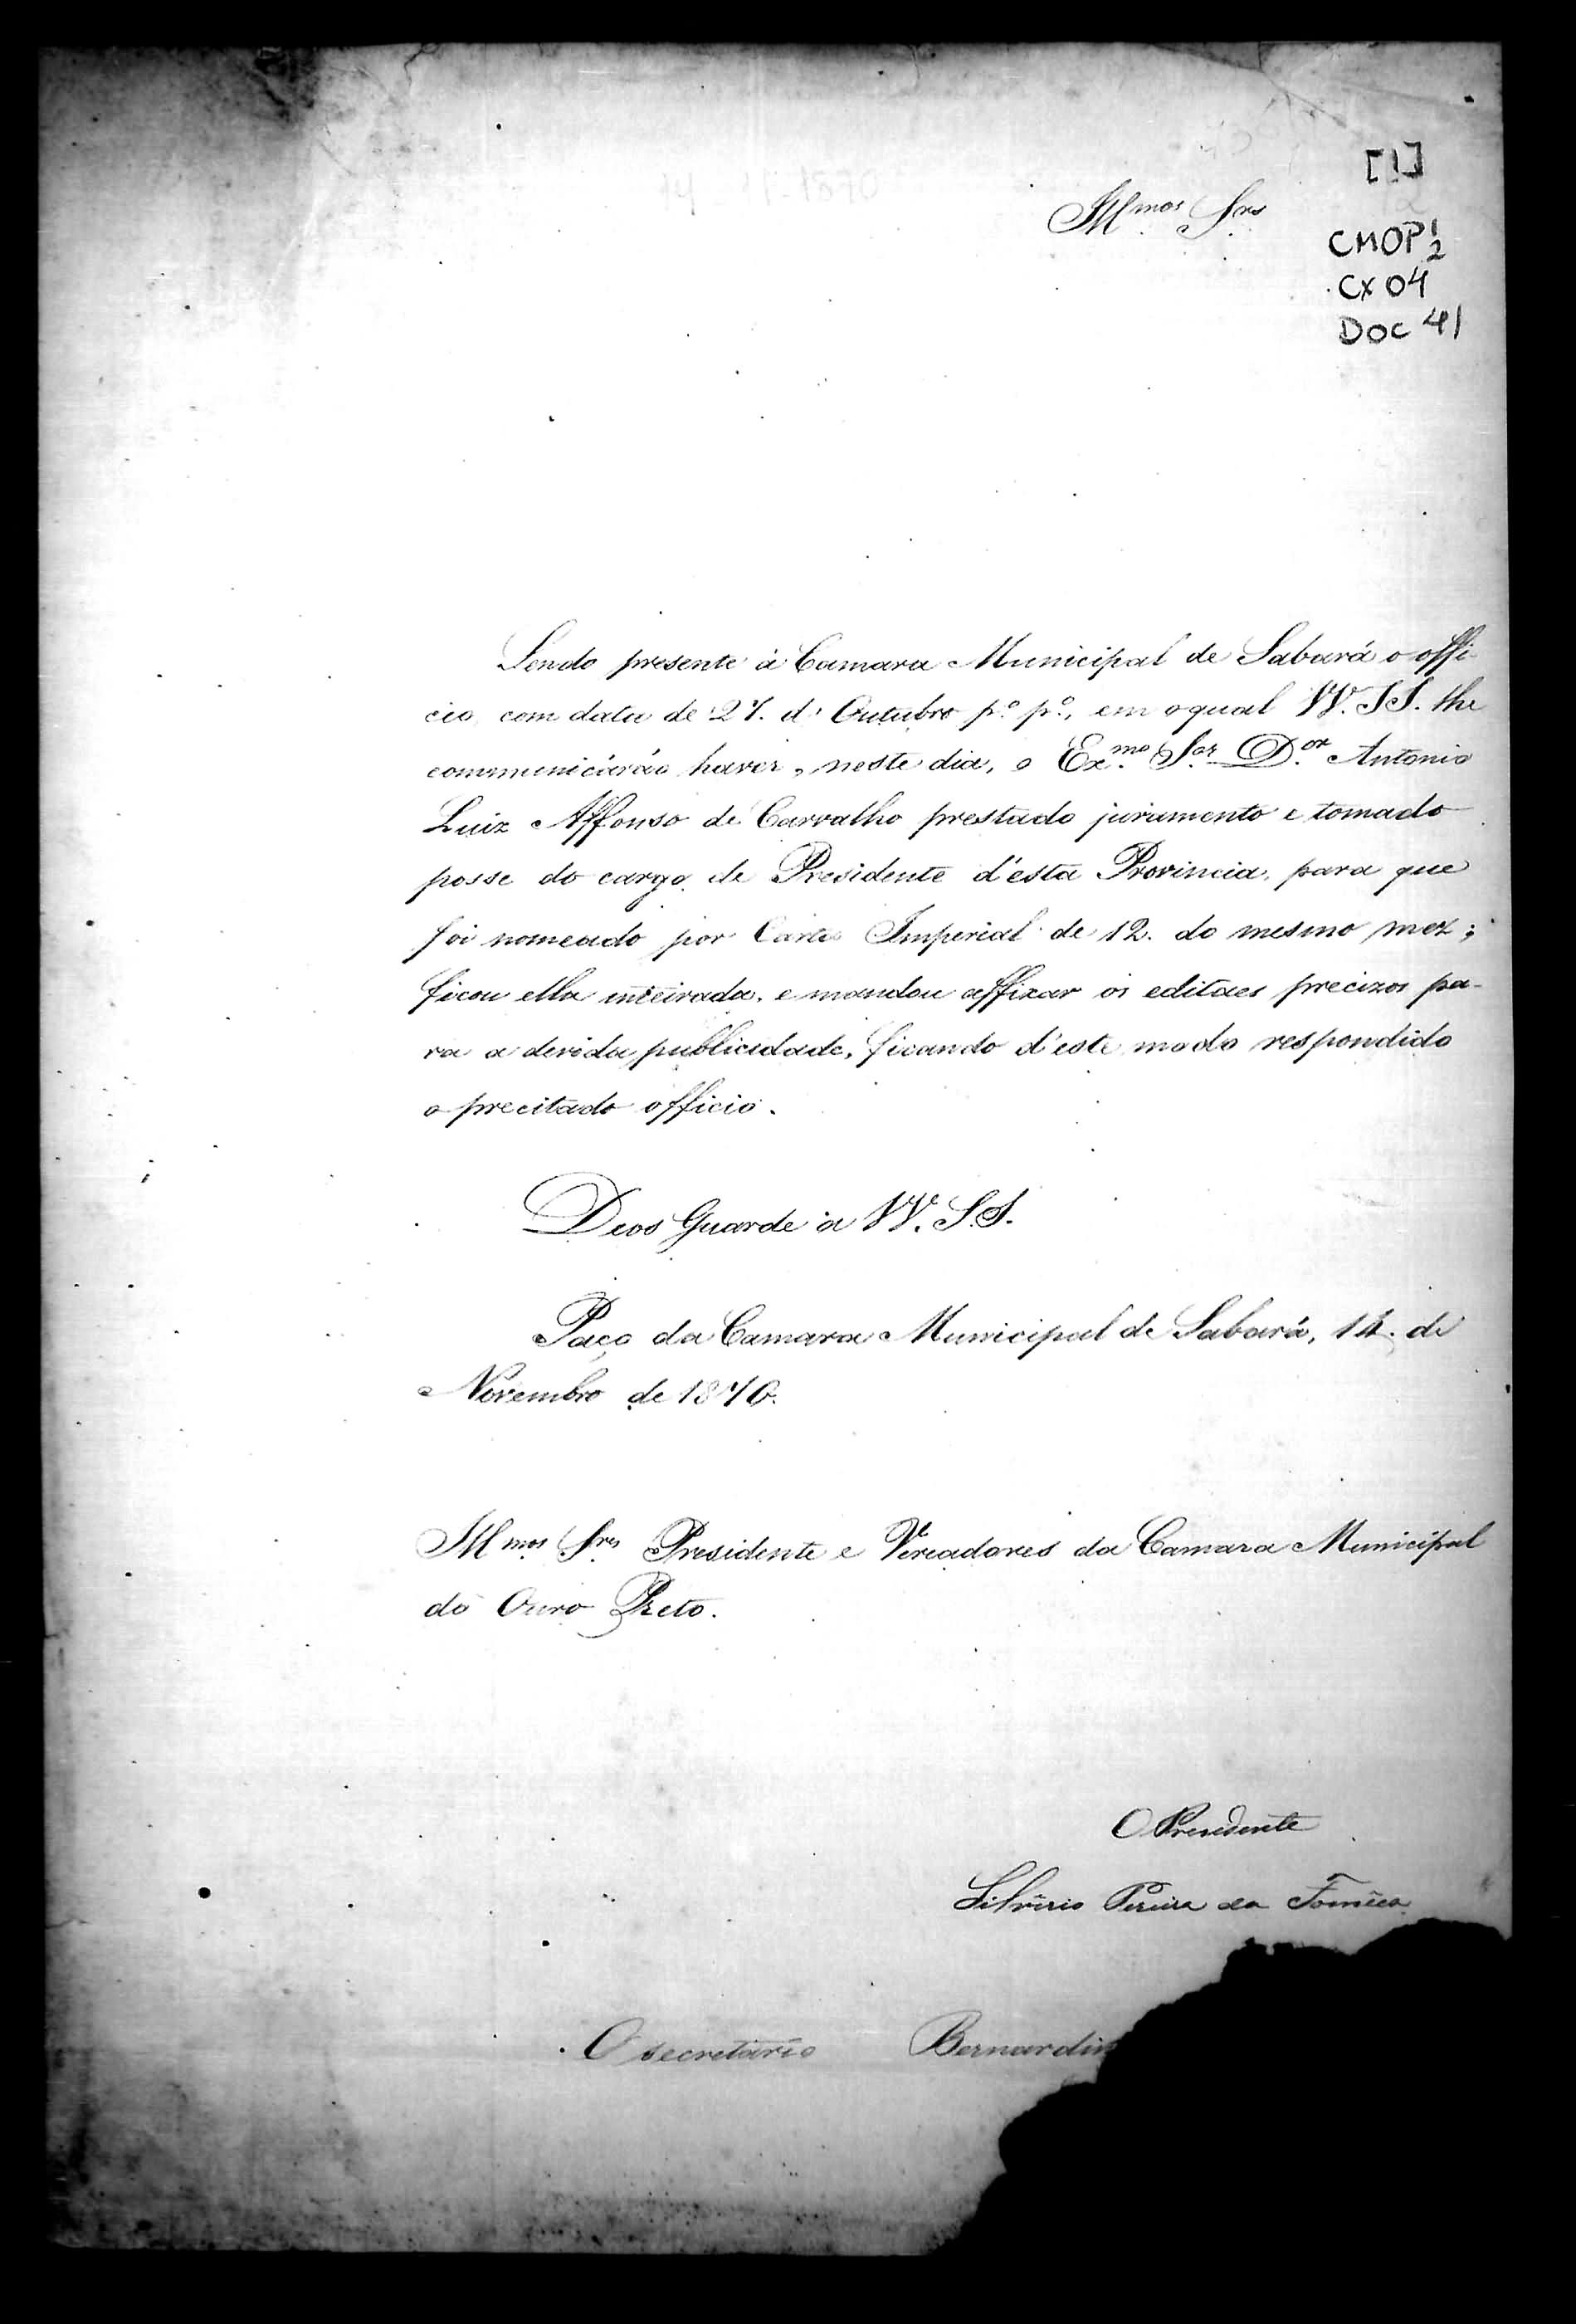 [1]
14-11-1870
Illmos Snrs
CMOP 1/2
CX 04
DOC 41
Sendo presente á Camara Municipal de Sabará o offi-
cio com data de 27. d' Outubro p.º p.º, em o qual VV. SS. lhe
communicárão haver, neste dia, o Ex.mo S.or D.or Antonio
Luiz Affonso de Carvalho prestado juramento e tomado
posse do cargo de Presidente d'esta Provincia, para que
foi nomeado por Carta Imperial de 12. do mesmo mez;
ficou ella inteirada, e mandou affixar os editaes precizos pa-
ra a devida publicidade, ficando d'este modo respondido
o precitado officio.
Deos Guarde a VV. SS.
Paço da Camara Municipal de Sabará, 14. de
Novembro de 1870.
Illmos Snres Presidente e Vereadores da Camara Municipal
do Ouro Preto.
O Presidente
Silverio Pereira da Fonseca
O secretario Bernardin